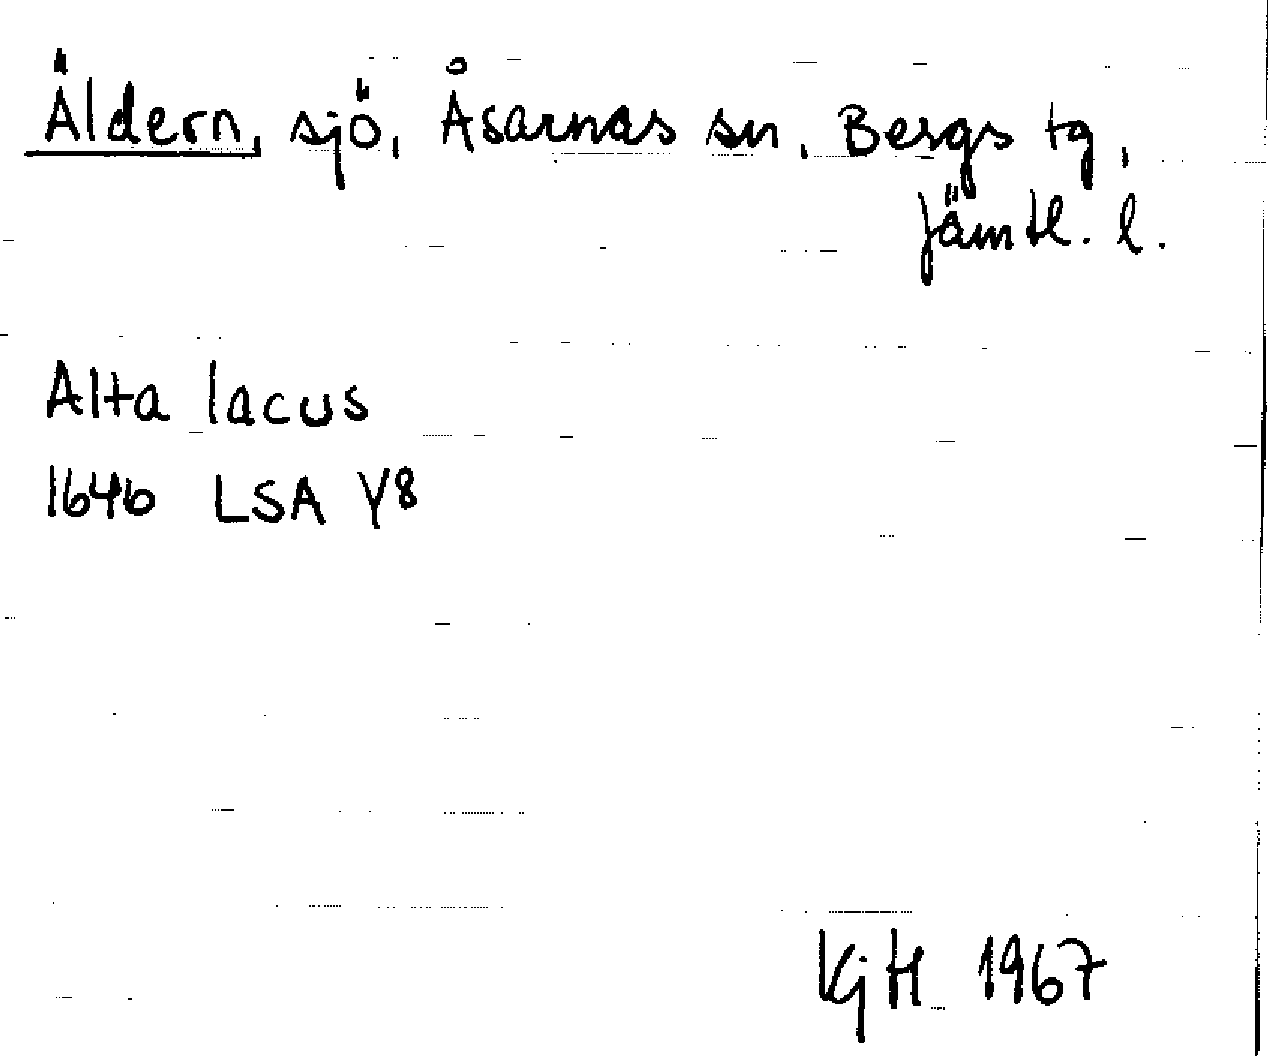 Äldern, sjö, Åsarnas sn, Bergs tg,
Jämtl. l.
Alta lacus
1646 LSA Y8
KjH 1967